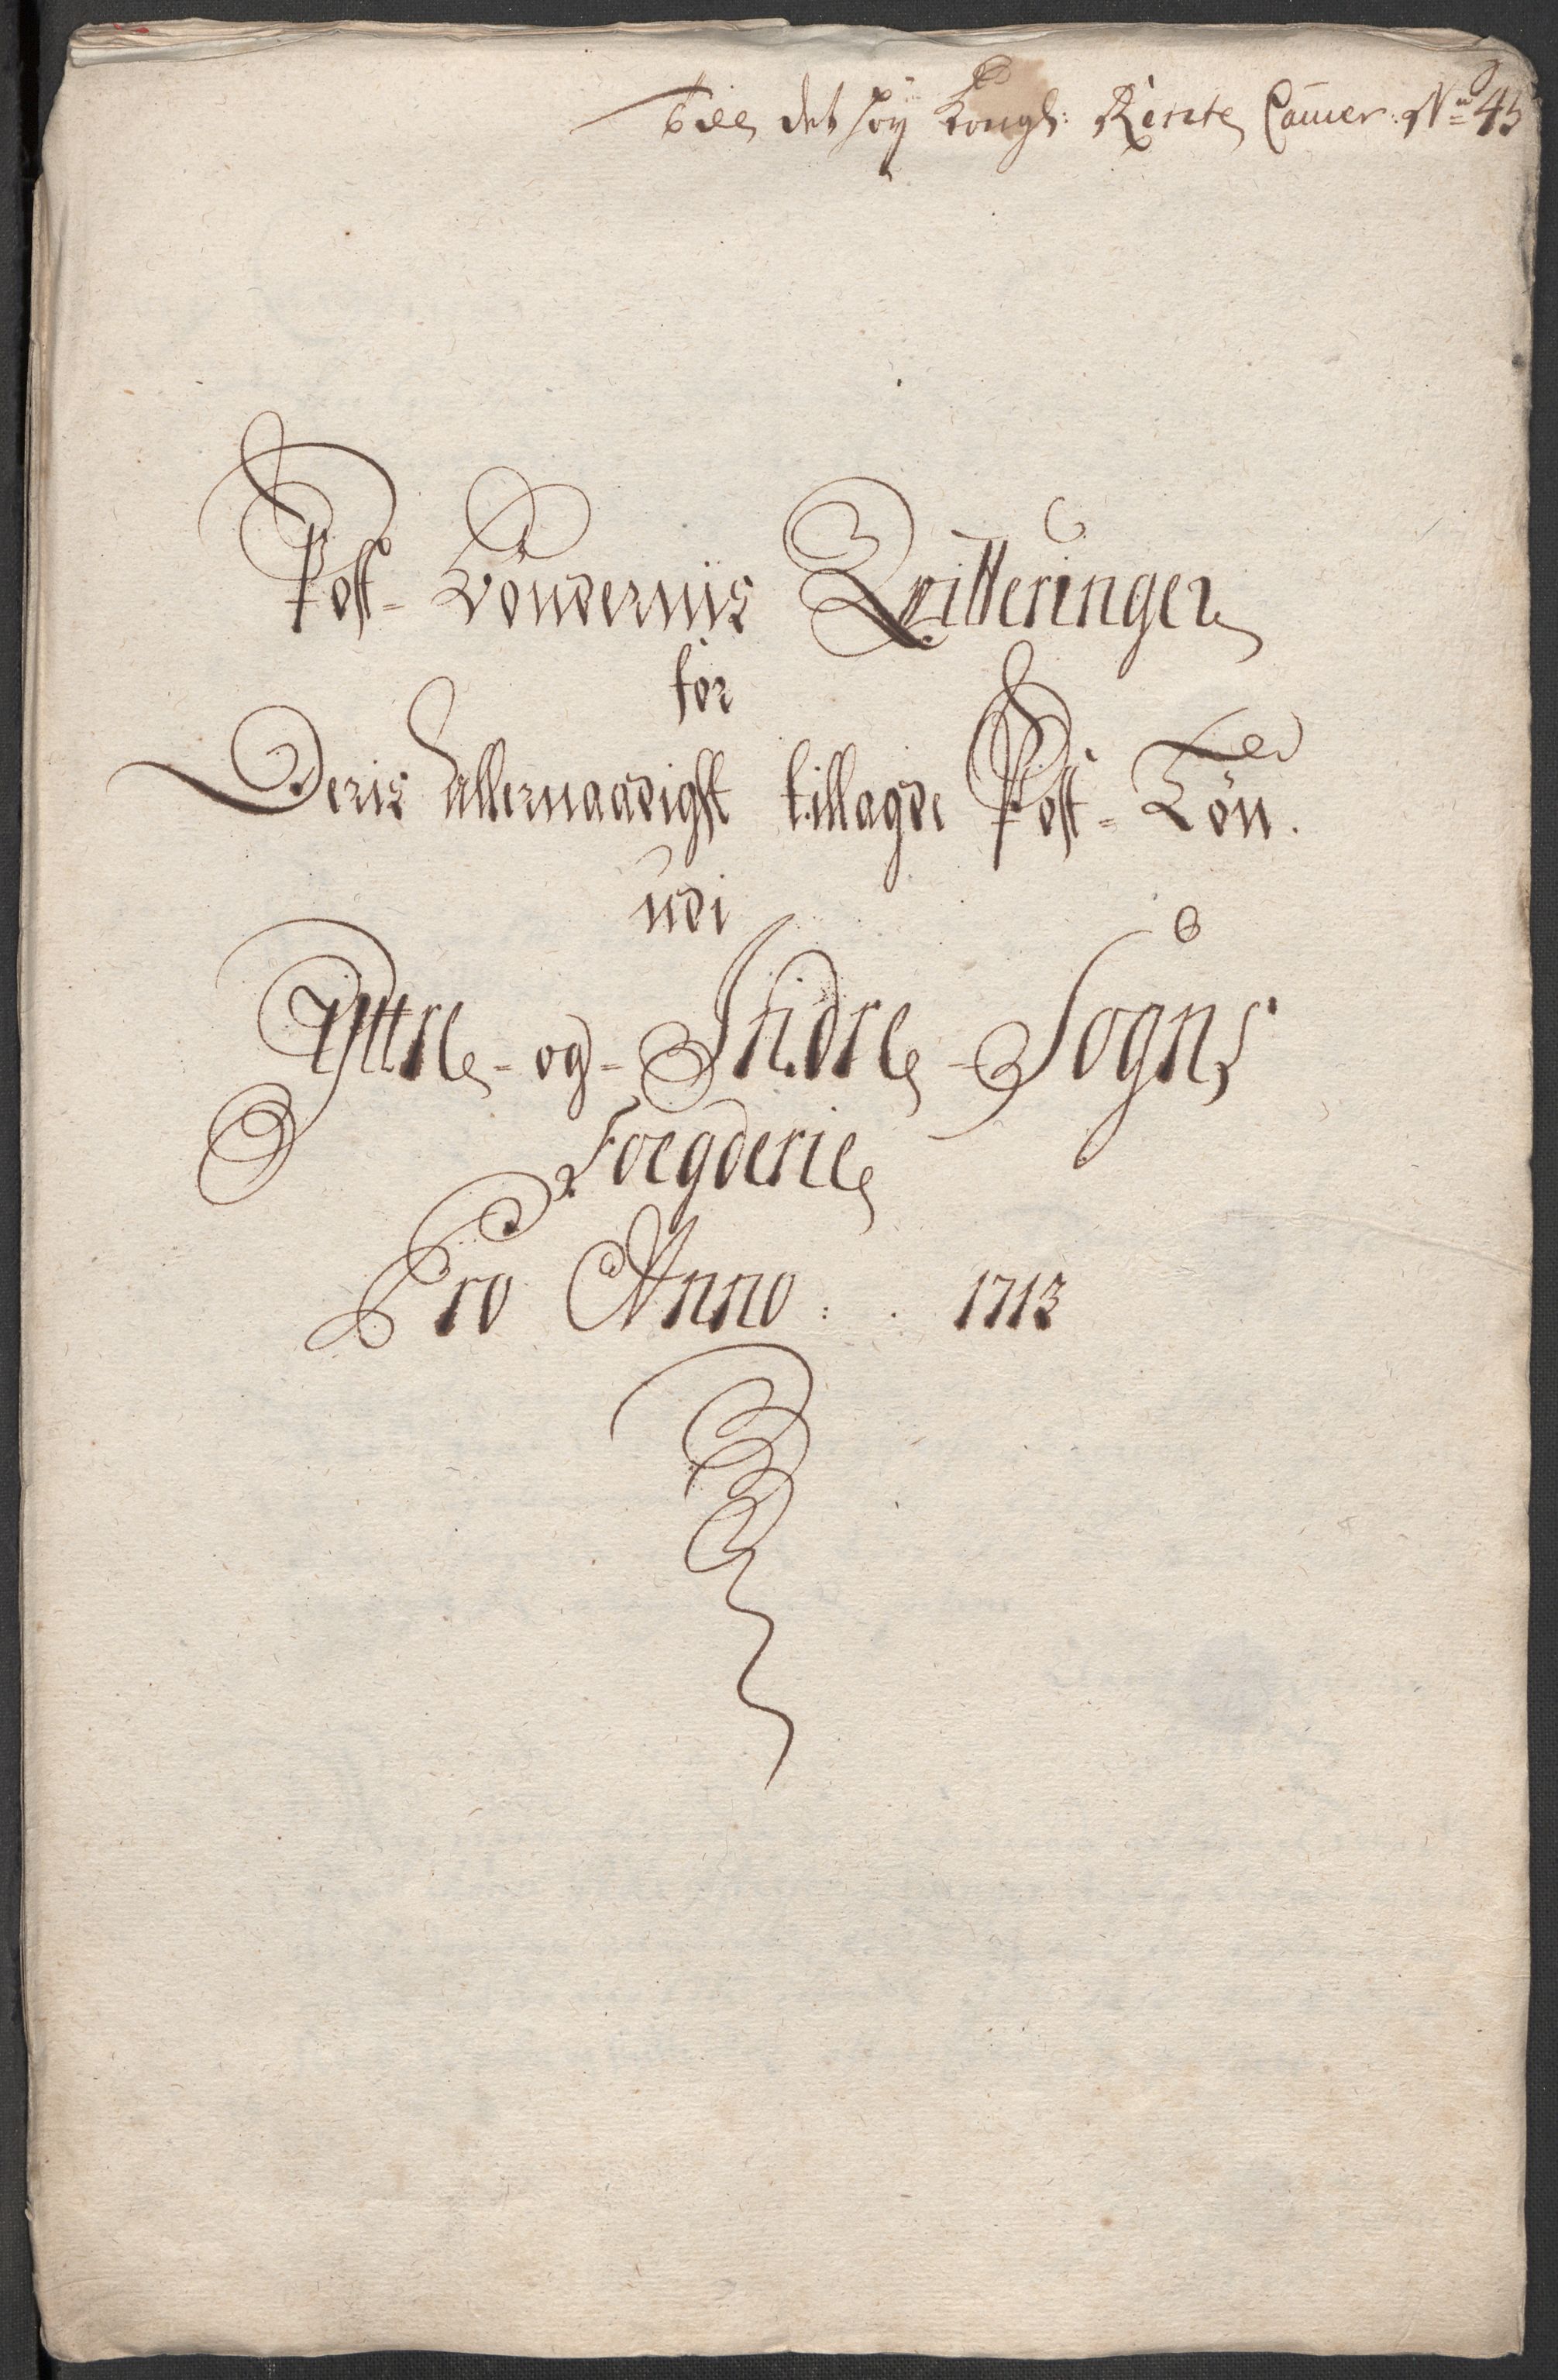 Till det høy Kongl: Rente Camer No 45
Post- Bøndernis Qvitteringer
for
Deris Allernaadigst tillagde Post- Løn.
udi
Yttre- og- Indre- Sogns
Foegderie
Pro Anno: . 1713